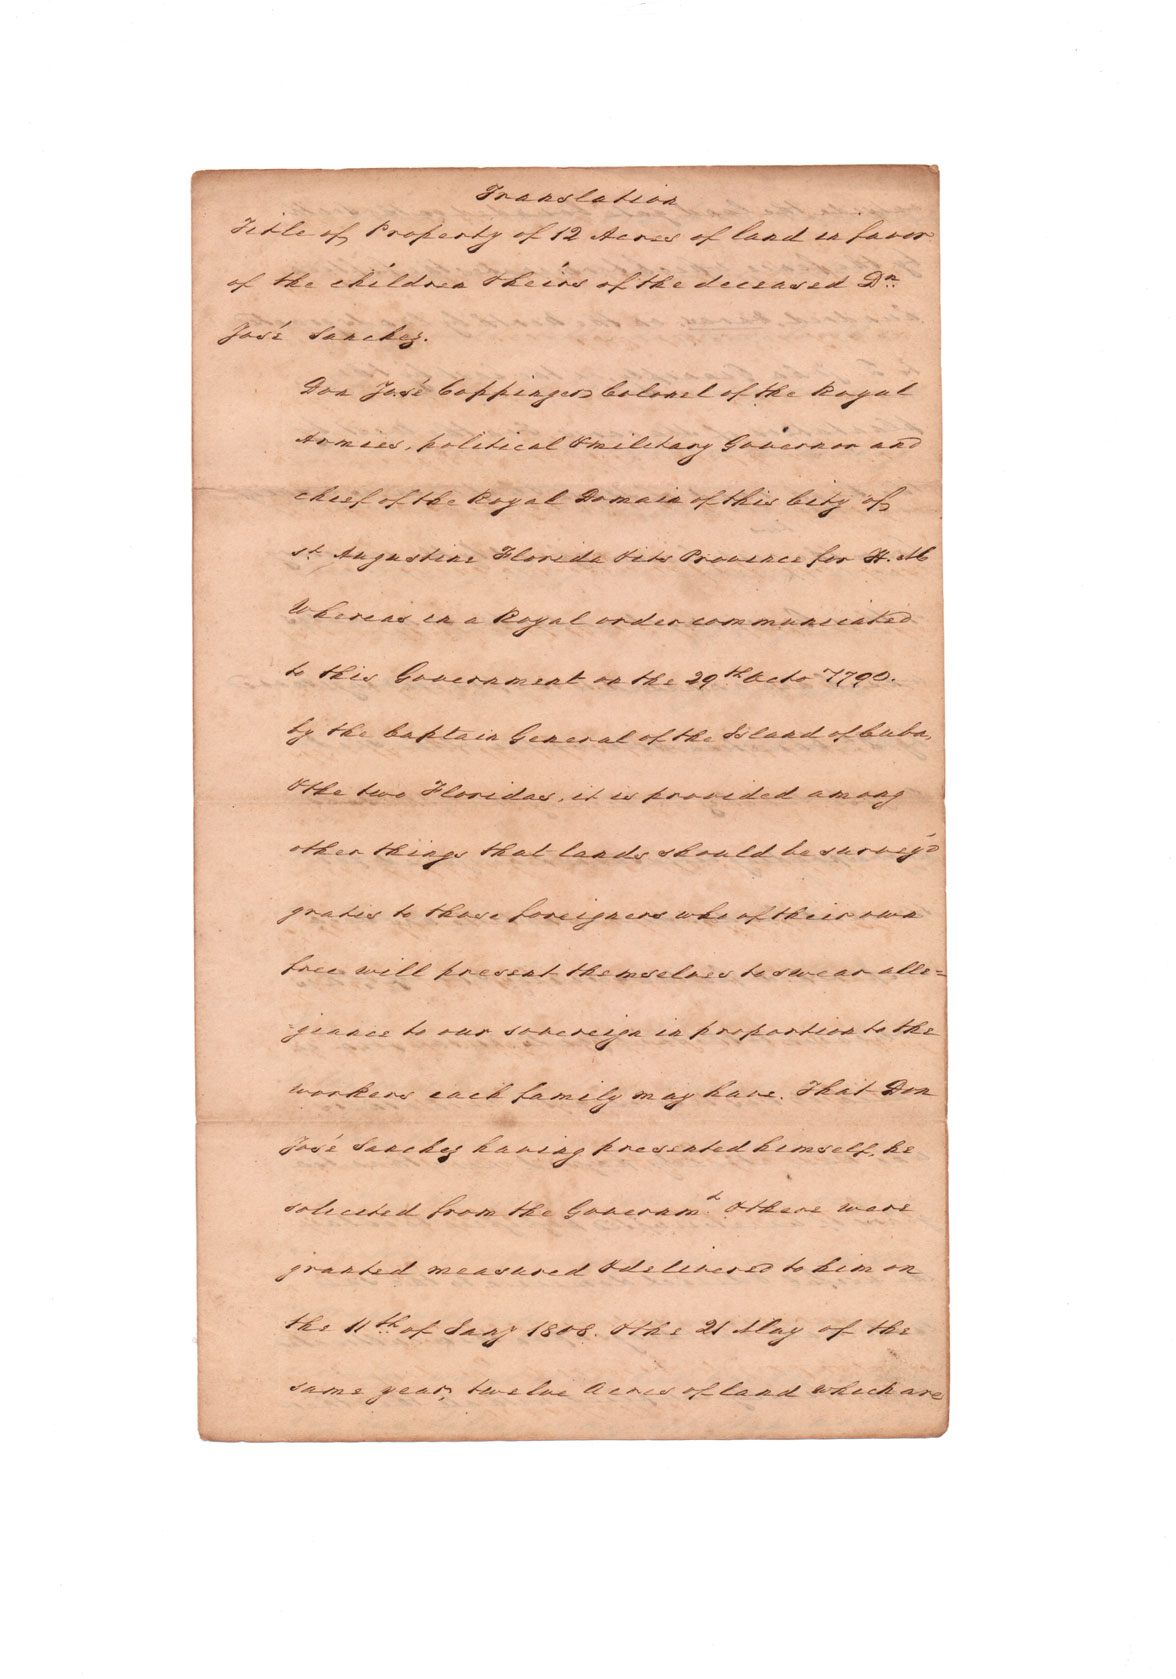 Translation
Title of Property of 12 Acres of land in favor
of the children & heirs of the deceased Dn.
José Sanchez.
Don José Coppinger Colonel of the Royal
Armies, political & military Governor and
chief of the Royal Domain of this City of
St. Augustine Florida & its Province for H. M
Whereas in a Royal order communicated
to this Government on the 29th Octo 1790.
by the Captain General of the Island of Cuba,
& the two Floridas, it is provided among
other things that lands should be survey'd
gratis to those foreigners who of their own
free will present themselves to swear alle=
giance to our sovereign in proportion to the
workers each family may have. That Don
José Sanchez having presented himself, he
solicited from the Governmt. & there were
granted measured & delivered to him on
the 11th of Jany 1808. & the 21 May of the
same year, twelve Acres of land which are